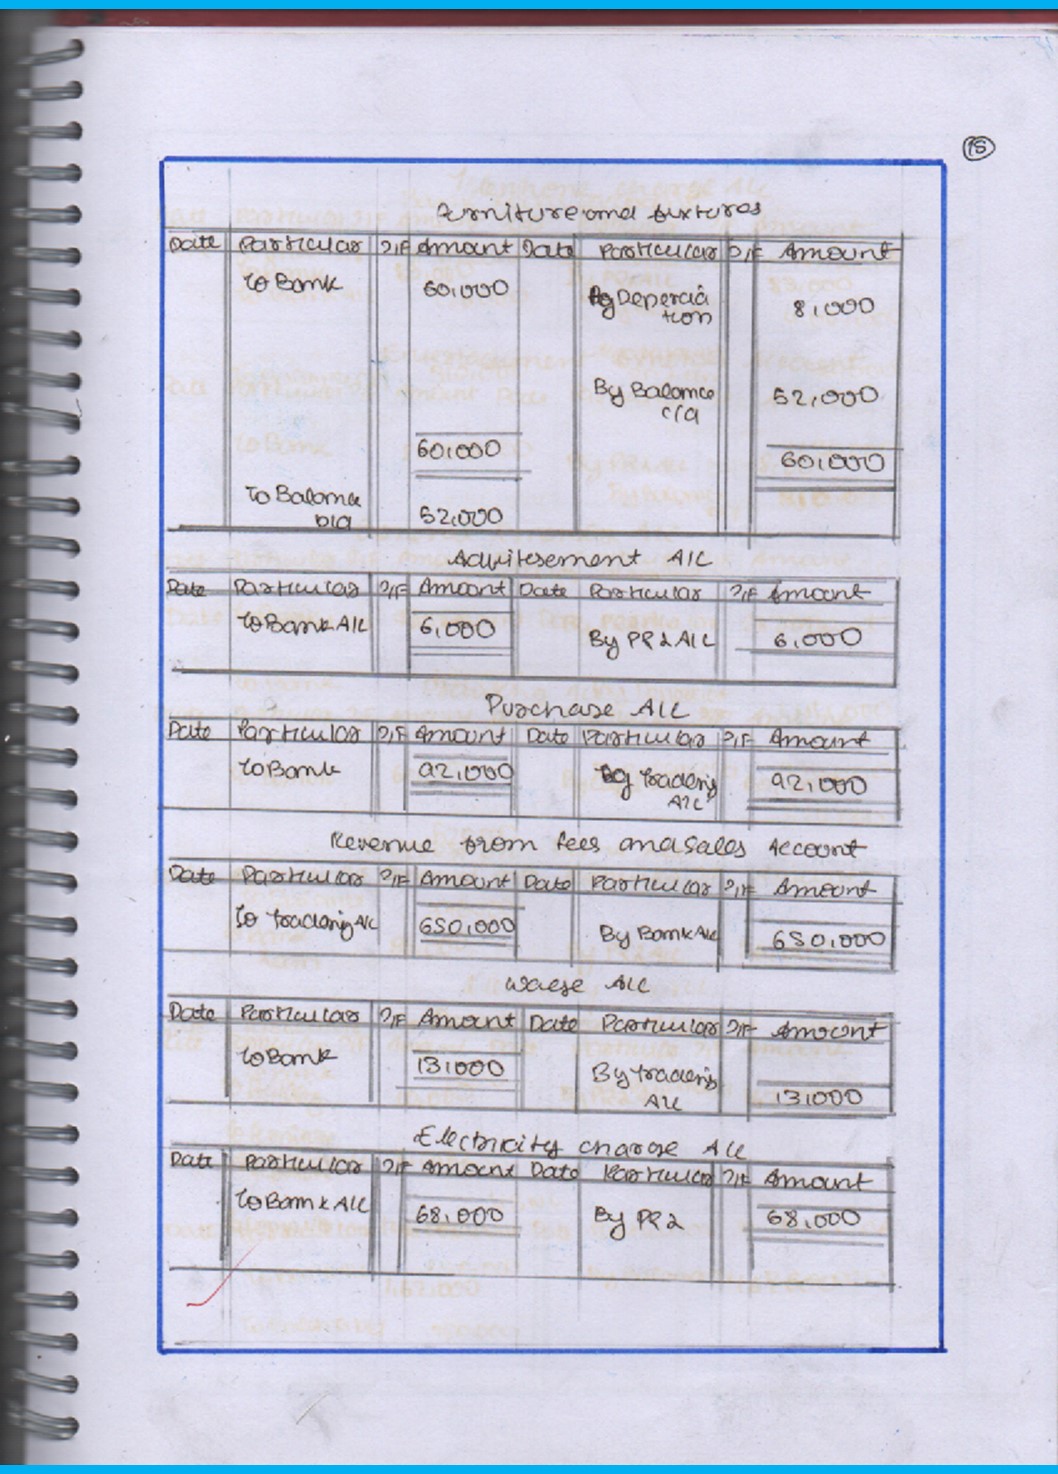 15
Furniture and fuxtures
Date Particular P/F Amount Date Particular P/F Amount
To Bank 60,000 By Depercia
tion 8,000
By Balance
c/d 52,000
60,000 60,000
To Balance
b/d 52,000
Advitesement A/C
Date Particular P/F Amount Date Particular P/F Amount
To Bank A/C 6,000 By P&L A/C 6,000
Purchase A/C
Date Particular P/F Amount Date Particular P/F Amount
To Bank 92,000 By Trading
A/C 92,000
Revenue from fees and Sales Account
Date Particular P/F Amount Date Particular P/F Amount
To Trading A/C 650,000 By Bank A/C 650,000
Waege A/C
Date Particular P/F Amount Date Particular P/F Amount
To Bank 131000 By Trading
A/C 131000
Electricity charge A/C
Date Particular P/F Amount Date Particular P/F Amount
To Bank A/C 68,000 By P&L 68,000